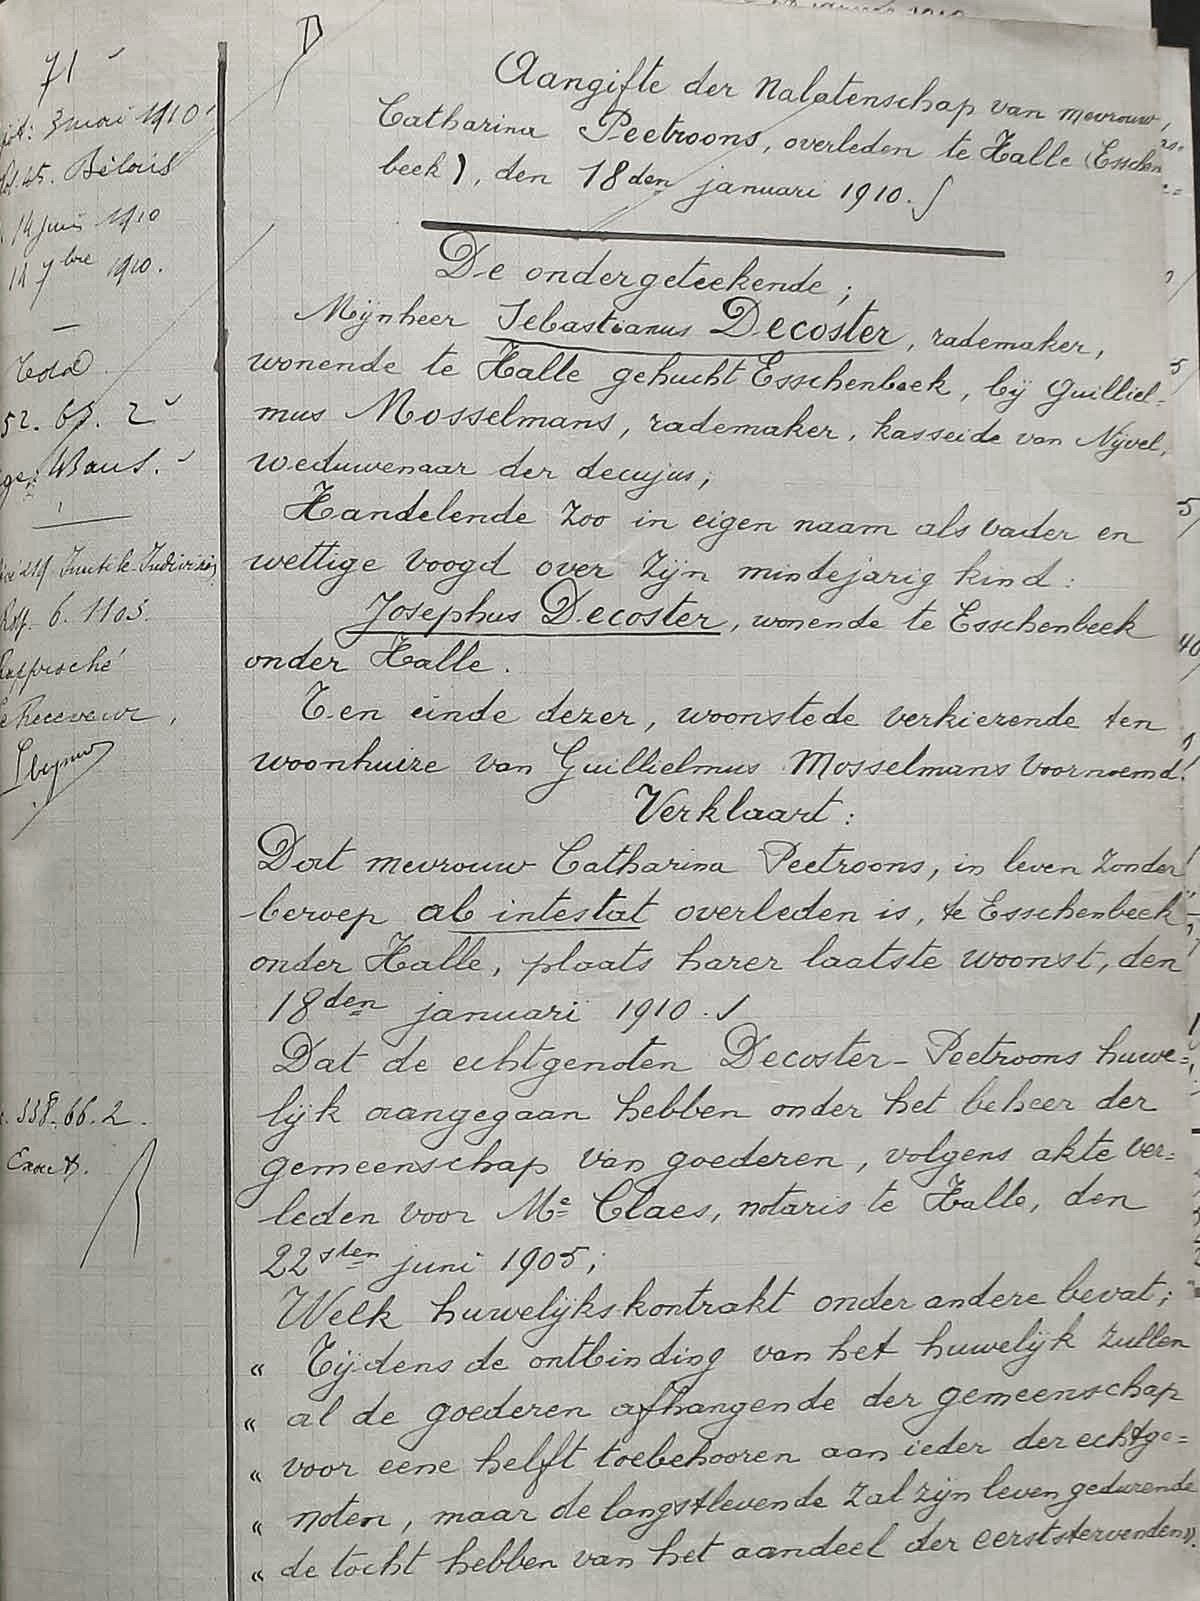 71
D
Aangifte der Nalatenschap van mevrouw,
Catharina Peetroons, overleden te Halle (Esschen
beek), den 18den januari 1910.
3 mai 1910
45.
14 juin 1910
14 7bre 1910.
De ondergeteekende;
Mijnheer Sebastianus Decoster, rademaker,
wonende te Halle gehucht Esschenbeek, bij Guilliel=
mus Mosselmans, rademaker, kasseide van Nijvel,
weduwenaar der decujus;
Handelende zoo in eigen naam als vader en
wettige voogd over zijn mindejarig kind:
Josephus Decoster, wonende te Esschenbeek
onder Halle.
52. 65. 2
6. 1103.
Receveur,
Ten einde dezer, woonstede verkiezende ten
woonhuize van Guillielmus Mosselmans voornoemd.
Verklaart:
Dat mevrouw Catharina Peetroons, in leven zonder
beroep ab intestat overleden is, te Esschenbeek
onder Halle, plaats harer laatste woonst, den
18den januari 1910.
Dat de echtgenoten Decoster-Peetroons huwe=
lijk aangegaan hebben onder het beheer der
gemeenschap van goederen, volgens akte ver=
leden voor Me Claes, notaris te Halle, den
22sten juni 1905;
338. 66. 2.
Welk huwelijkskontrakt onder andere bevat;
" Tijdens de ontbinding van het huwelijk zullen
" al de goederen afhangende der gemeenschap
" voor eene helft toebehooren aan ieder der echtge=
" noten, maar de langstlevende zal zijn leven gedurende
" de tocht hebben van het aandeel der eerststervenden".